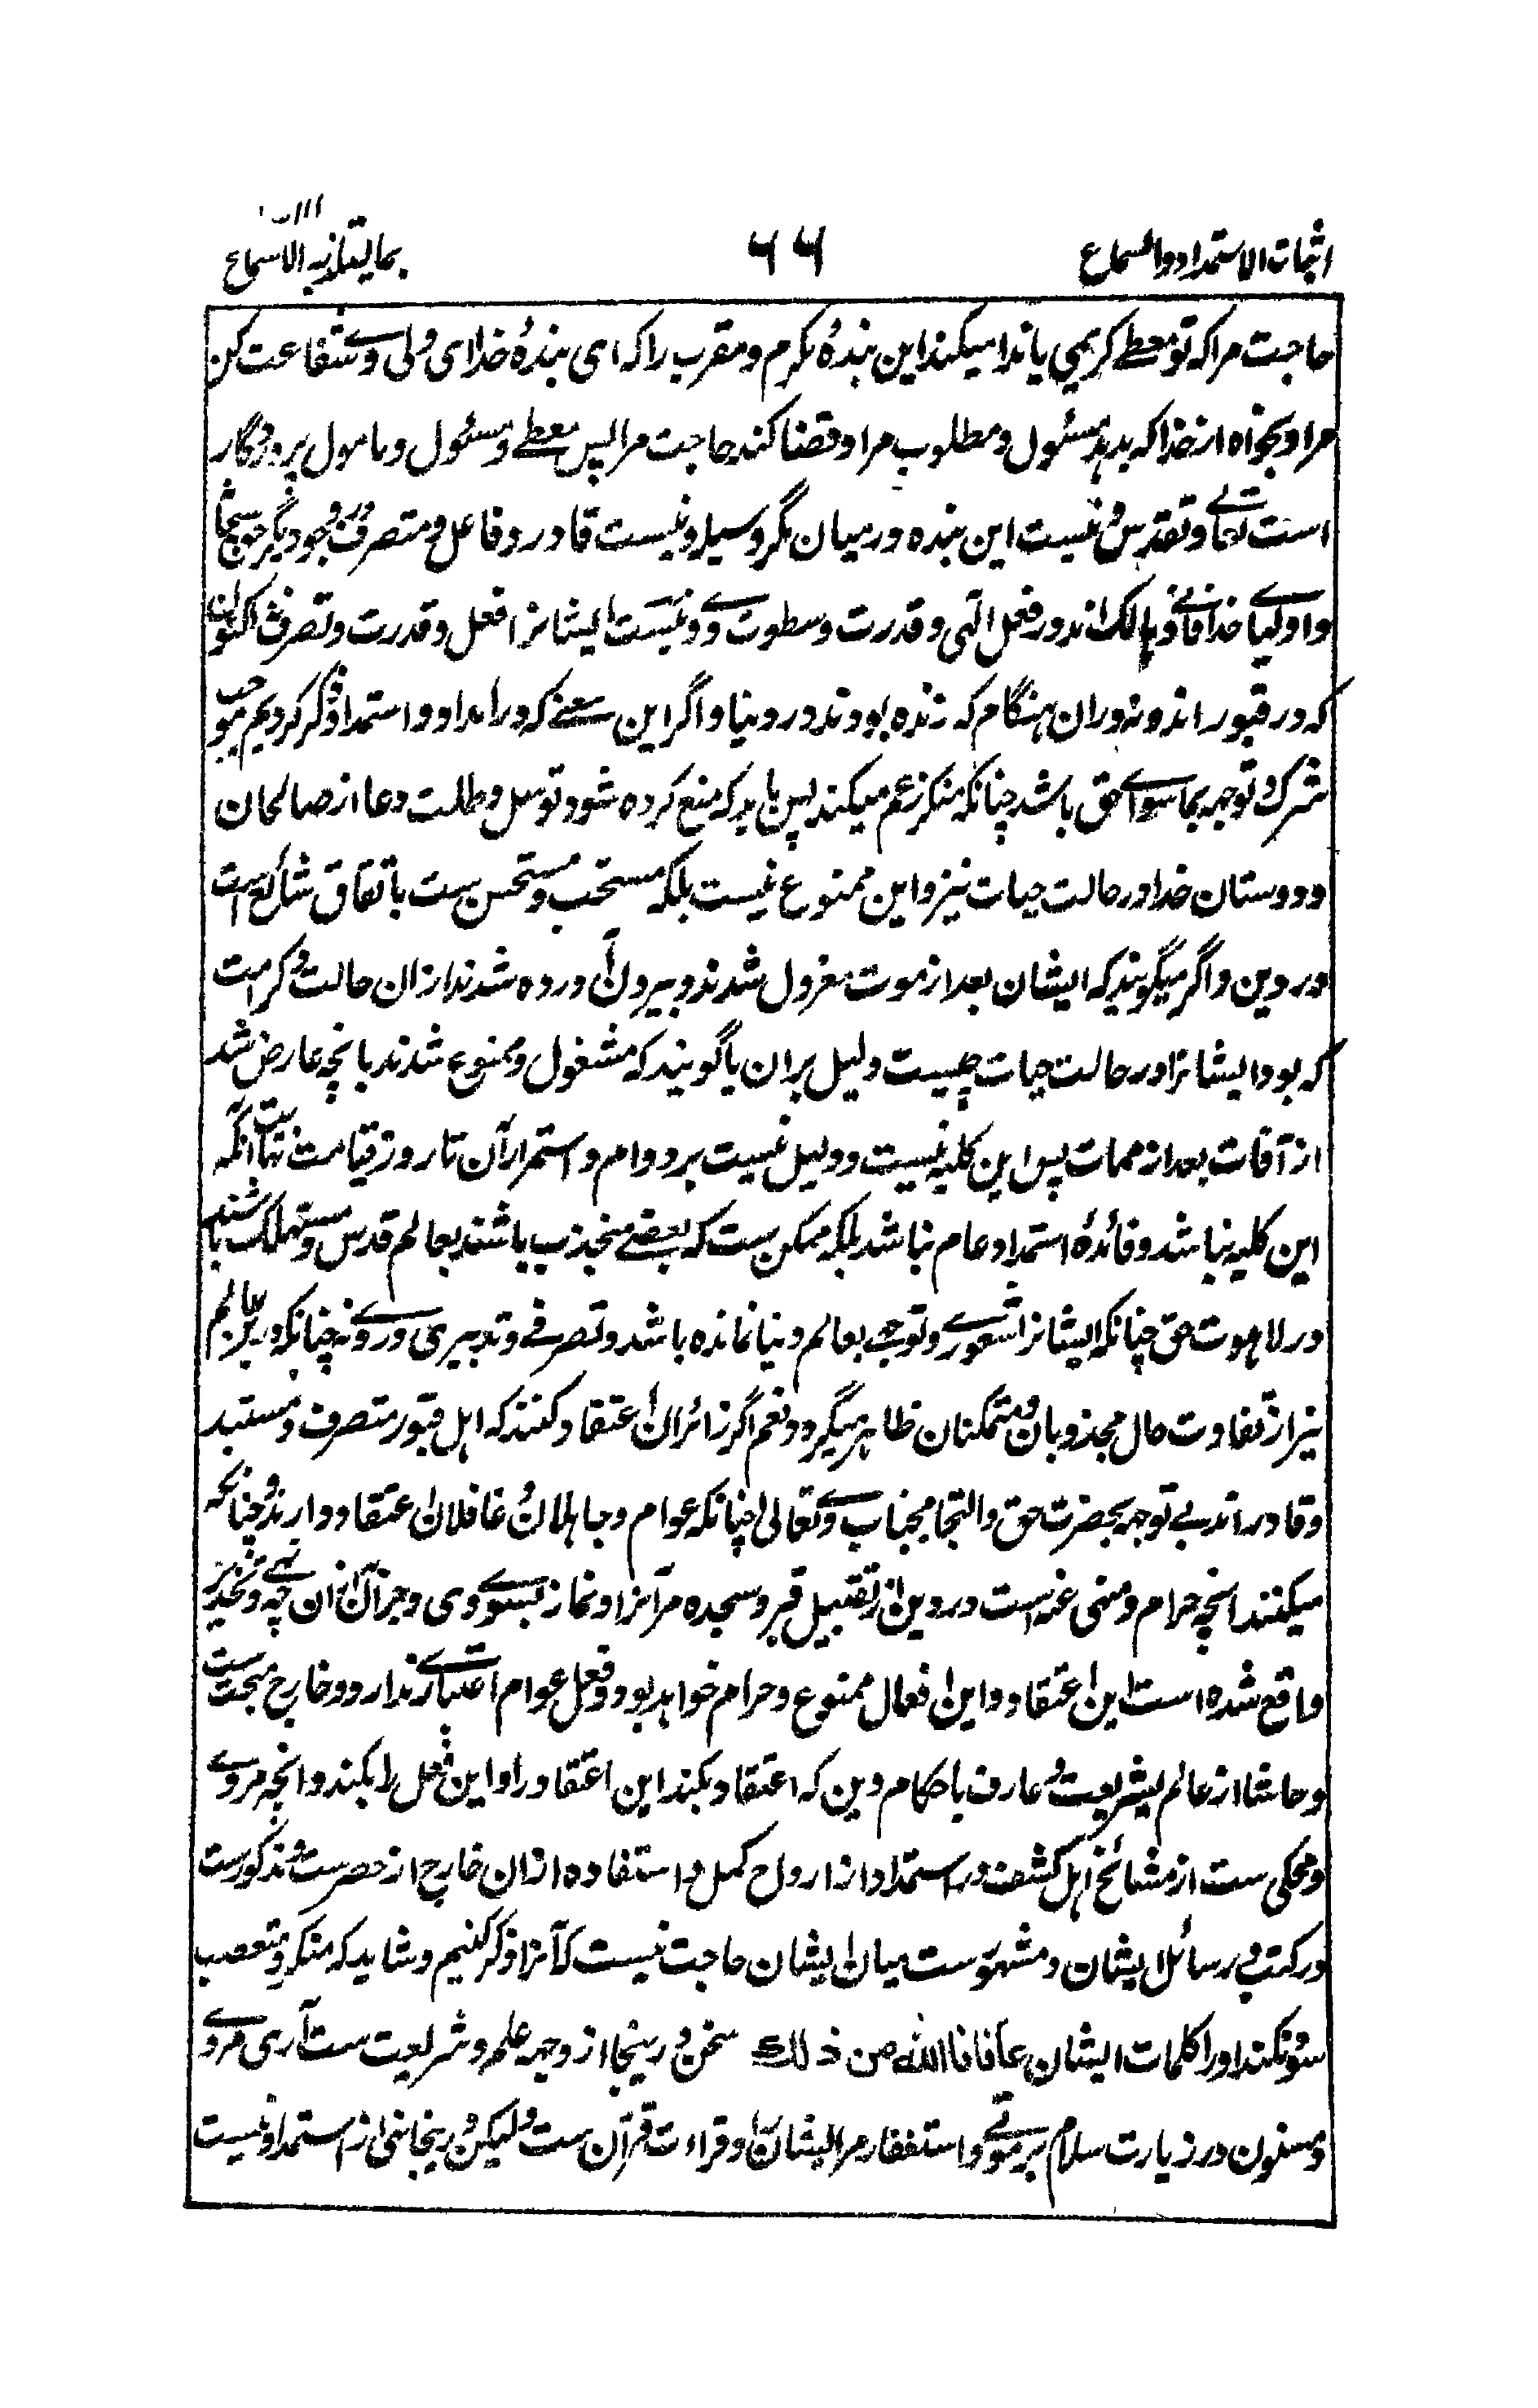 اثبات الاستمداد والسماع ۶۶ بما یتلذ به الاسماع
حاجت مرا که تو معطے کریمی یا ندا میکند این بندهٔ مکرم و مقرب را که ای بندهٔ خدا ای ولی وے شفاعت کن
مرا و بخواه از خدا که بدهد مسئول و مطلوب مرا و قضا کند حاجت مرا پس معطے و مسئول و مامول پروردگار
است تعالے و تقدس و نیست این بنده در میان مگر وسیله و نیست قادر و فاعل و متصرف در وجود مگر حق سبحانه
و اولیاے خدا فانے و هالک اند در فعل الٰهی و قدرت و سطوت وے و نیست ایشانرا فعل و قدرت و تصرف اکنون
که در قبور اند و نه دران هنگام که زنده بودند در دنیا و اگر این معنے که در امداد و استمداد ذکر کردیم موجب
شرک و توجه بماسواے حق باشد چنانکه منکر زعم میکند پس باید که منع کرده شود توسل و طلب دعا از صالحان
و دوستان خدا در حالت حیات نیز و این ممنوع نیست بلکه مستحب و مستحسن ست باتفاق شائع است
در دین و اگر میگویند که ایشان بعد از موت معزول شدند و بیرون آورده شدند ازان حالت و کرامت
که بود ایشانرا در حالت حیات چیست دلیل بران یا گویند که مشغول و ممنوع شدند بانچه عارض شد
از آفات بعد از ممات پس این کلیه نیست و دلیل نیست بر دوام و استمرار آن تا روز قیامت نهایت آنکه
این کلیه نباشد و فائدهٔ استمداد عام نباشد بلکه ممکن ست که بعضے منجذب باشند بعالم قدس و مستهلک باشند
در لاهوت حق چنانکه ایشانرا شعورے و توجهے بعالم دنیا نمانده باشد و تصرفے و تدبیری درو ے نه چنانکه درین عالم
نیز از تفاوت حال مجذوبان و متمکنان ظاهر میگردد و نعم اگر زائران اعتقاد کنند که اهل قبور متصرف و مستبد
و قادر اند بے توجه بحضرت حق و التجا بجناب وے تعالی چنانکه عوام و جاهلان و غافلان اعتقاد دارند و چنانکه
میکنند انچه حرام و منهی عنه است در دین از تقبیل قبر و سجده مر آنرا و نماز بسوے وی و جز آن ازان چه نهے و تحذیر
واقع شده است این اعتقاد و این افعال ممنوع و حرام خواهد بود و فعل عوام اعتبارے ندارد و خارج مبحث ست
و حاشا از عالم بشریعت و عارف باحکام دین که اعتقاد بکند این اعتقاد را و این فعل را بکند و انچه مروے
و محکی ست از مشائخ اهل کشف در استمداد از ارواح کمل و استفاده ازان خارج از حصر ست و مذکورست
در کتب و رسائل ایشان و مشهورست میان ایشان حاجت نیست که آنرا ذکر کنیم و شاید که منکر و متعصب
سود نکند او را کلمات ایشان عافانا الله من ذلك سخن در ینجا از وجهه علم و شریعت ست آری مروے
و مسنون در زیارت سلام بر موتے و استغفار مر ایشان را و قراءت قرآن ست ولیکن درینجا نهی از استمداد نیست